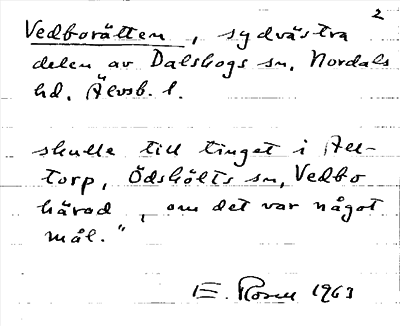 2
Vedborätten, sydvästra
delen av Dalskogs sn, Nordals
hd, Älvsb. l.
skulle till tinget i Åll-
torp, Ödskölts sn, Vedbo
härad, om det var något
mål."
E. Rosell 1963